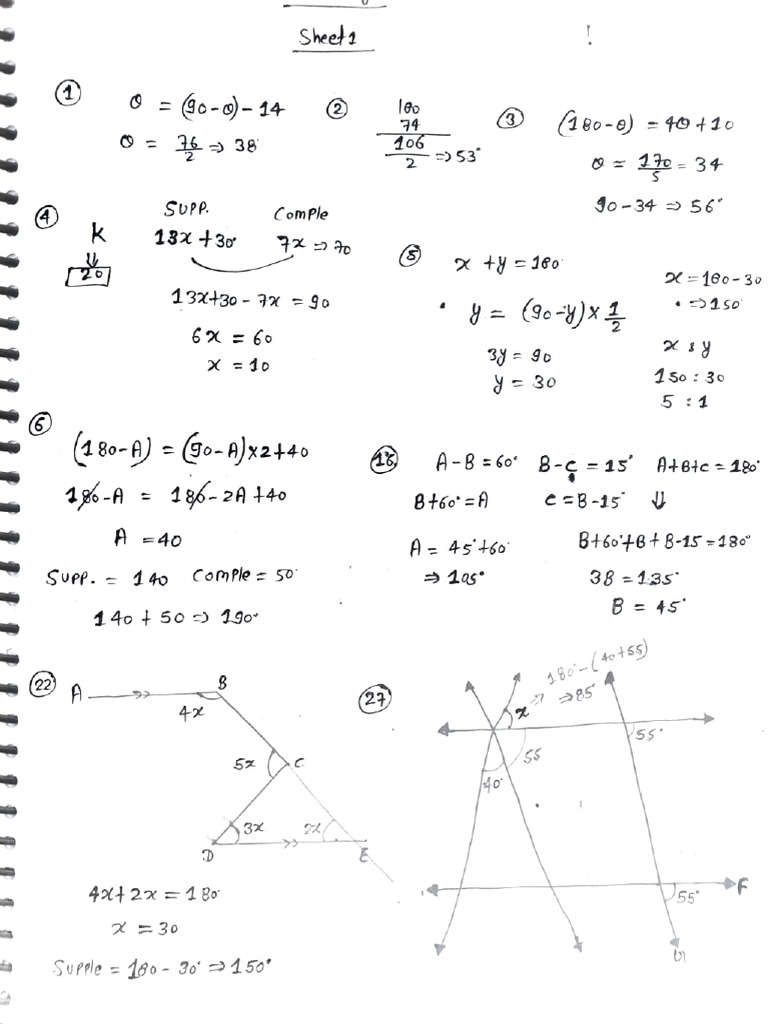 Sheet 1
!
①
θ = (90-θ)-14
θ = 76/2 ⇒ 38°
②
180
74
106/2 ⇒ 53°
③
(180-θ) = 4θ+10
θ = 170/5 = 34
90-34 ⇒ 56°
④
Supp. Comple
k 13x+30° 7x ⇒ 70
⇓
20
13x+30-7x = 90
6x = 60
x = 10
⑤
x + y = 180°
y = (90-y)×1/2
3y = 90
y = 30
x = 180-30
⇒ 150°
x : y
150 : 30
5 : 1
⑥
(180-A) = (90-A)×2+40
180-A = 180-2A+40
A = 40
Supp. = 140 Comple = 50°
140 + 50 ⇒ 190°
16.
A-B = 60° B-C = 15° A+B+C = 180°
B+60° = A C = B-15° ⇓
A = 45°+60° B+60°+B+B-15 = 180°
⇒ 105° 3B = 135°
B = 45°
22
A B
4x
5x C
3x 2x
D E
4x+2x = 180°
x = 30
Supple = 180-30° ⇒ 150°
27
180°-(40+55)
x ⇒ ⇒85°
55°
55
40°
F
55°
G